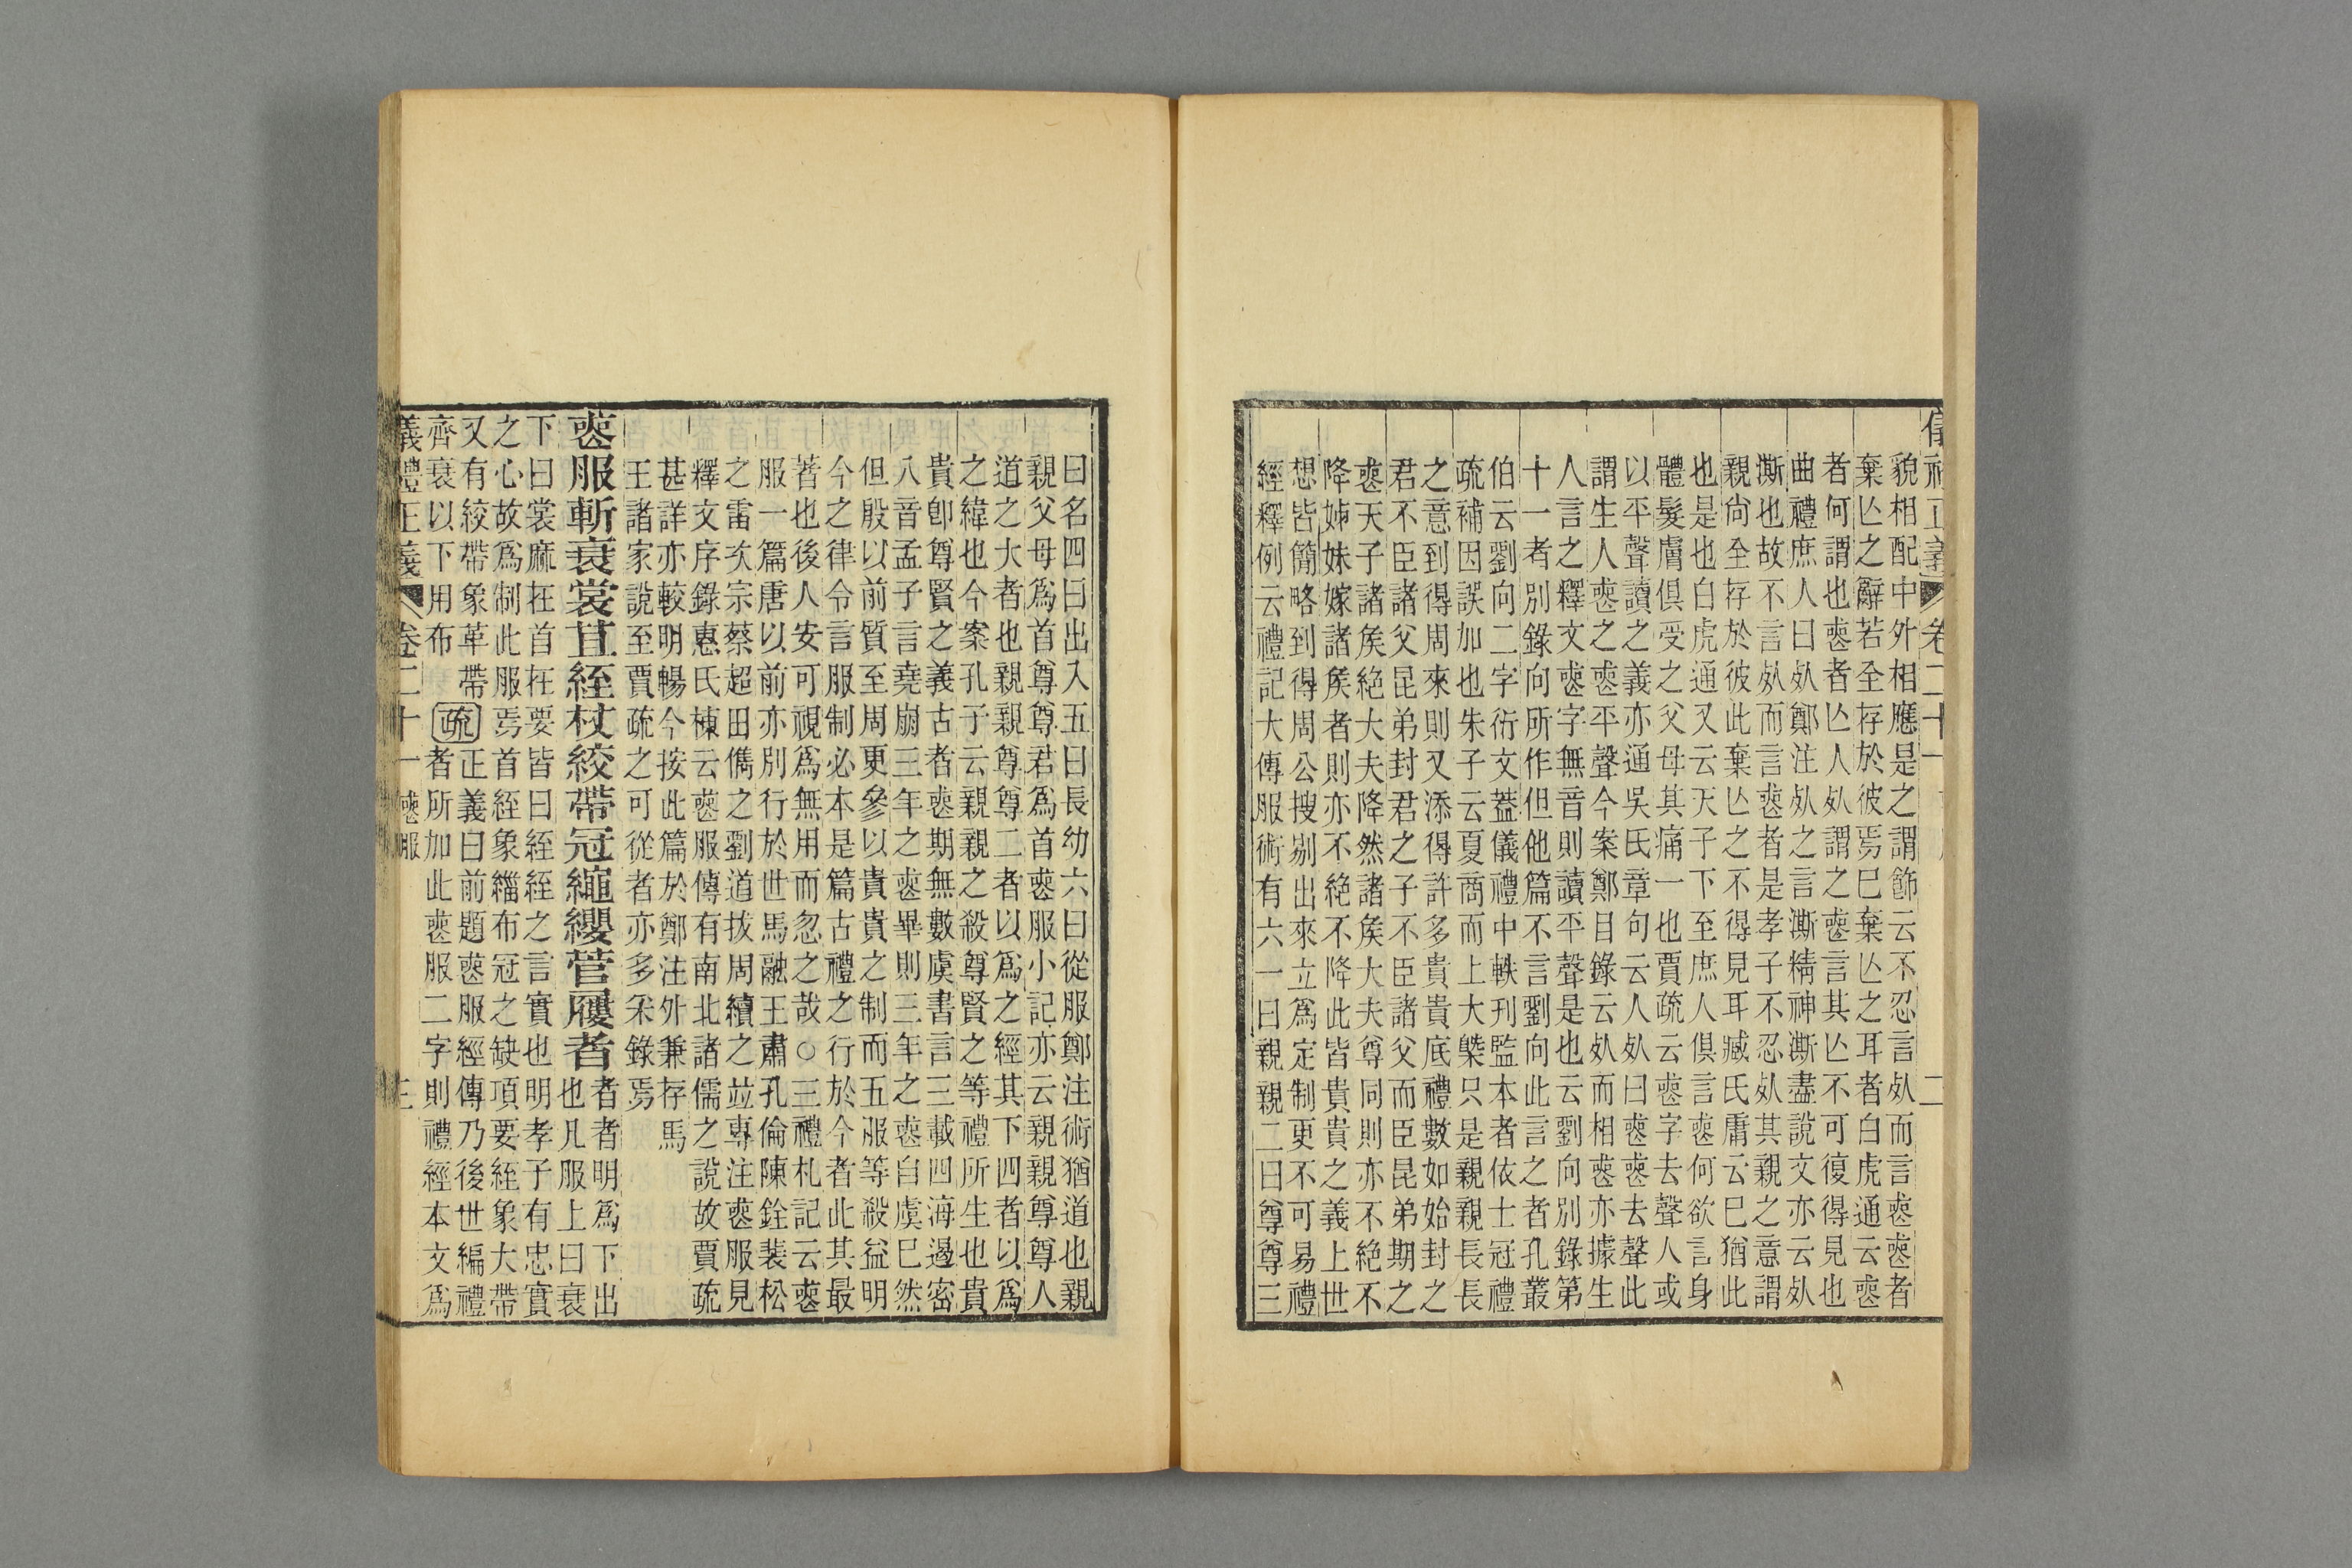 儀禮正義 卷二十一 二
貌相配中外相應是之謂飾云不忍言𣦸而言䘮䘮者
棄亾之辭若全存於彼焉已棄亾之耳者白虎通云䘮
者何謂也䘮者亾人𣦸謂之䘮言其亾不可復得見也
曲禮庶人曰𣦸鄭注𣦸之言澌精神澌盡說文亦云𣦸
澌也故不言𣦸而言䘮者是孝子不忍𣦸其親之意謂
親尙全存於彼此棄亾之不得見耳臧氏庸云已猶此
也是也白虎通又云天子下至庶人俱言䘮何欲言身
體髮膚俱受之父母其痛一也賈疏云䘮字去聲人或
以平聲讀之義亦通吳氏章句云人𣦸曰䘮䘮去聲此
謂生人䘮之䘮平聲今案鄭目錄云𣦸而相䘮亦據生
人言之釋文䘮字無音則讀平聲是也云劉向別錄第
十一者別錄向所作但他篇不言劉向此言之者孔叢
伯云劉向二字衍文蓋儀禮中軼刋監本者依士冠禮
疏補因誤加也朱子云夏商而上大槩只是親親長長
之意到得周來則又添得許多貴貴底禮數如始封之
君不臣諸父昆弟封君之子不臣諸父而臣昆弟期之
䘮天子諸矦絶大夫降然諸矦大夫尊同則亦不絶不
降姊妹嫁諸矦者則亦不絶不降此皆貴貴之義上世
想皆簡略到得周公搜剔出來立爲定制更不可易禮
經釋例云禮記大傳服術有六一曰親親二曰尊尊三
曰名四曰出入五曰長幼六曰從服鄭注術猶道也親
親父母爲首尊尊君爲首䘮服小記亦云親親尊尊人
道之大者也親親尊尊二者以爲之經其下四者以爲
之緯也今案孔子云親親之殺尊賢之等禮所生也貴
貴卽尊賢之義古者䘮期無數虞書言三載四海遏密
八音孟子言堯崩三年之䘮畢則三年之䘮自虞巳然
但殷以前質至周更參以貴貴之制而五服等殺益明
今之律令言服制必本是篇古禮之行於今者此其最
著也後人安可視爲無用而忽之哉○三禮札記云䘮
服一篇唐以前亦別行於世馬融王肅孔倫陳銓裴松
之雷次宗蔡超田儁之劉道拔周續之竝專注䘮服見
釋文序錄惠氏棟云䘮服傳有南北諸儒之說故賈疏
甚詳亦較明暢今按此篇於鄭注外兼存馬
王諸家說至賈疏之可從者亦多采錄焉
䘮服斬衰裳苴絰杖絞帶冠繩纓菅屨者 者者明爲下出
也凡服上曰衰
下曰裳麻在首在要皆曰絰絰之言實也明孝子有忠實
之心故爲制此服焉首絰象緇布冠之缺項要絰象大帶
又有絞帶象革帶
齊衰以下用布 疏 正義曰前題䘮服經傳乃後世編禮
者所加此䘮服二字則禮經本文爲
義禮正義 卷二十一 䘮服 三